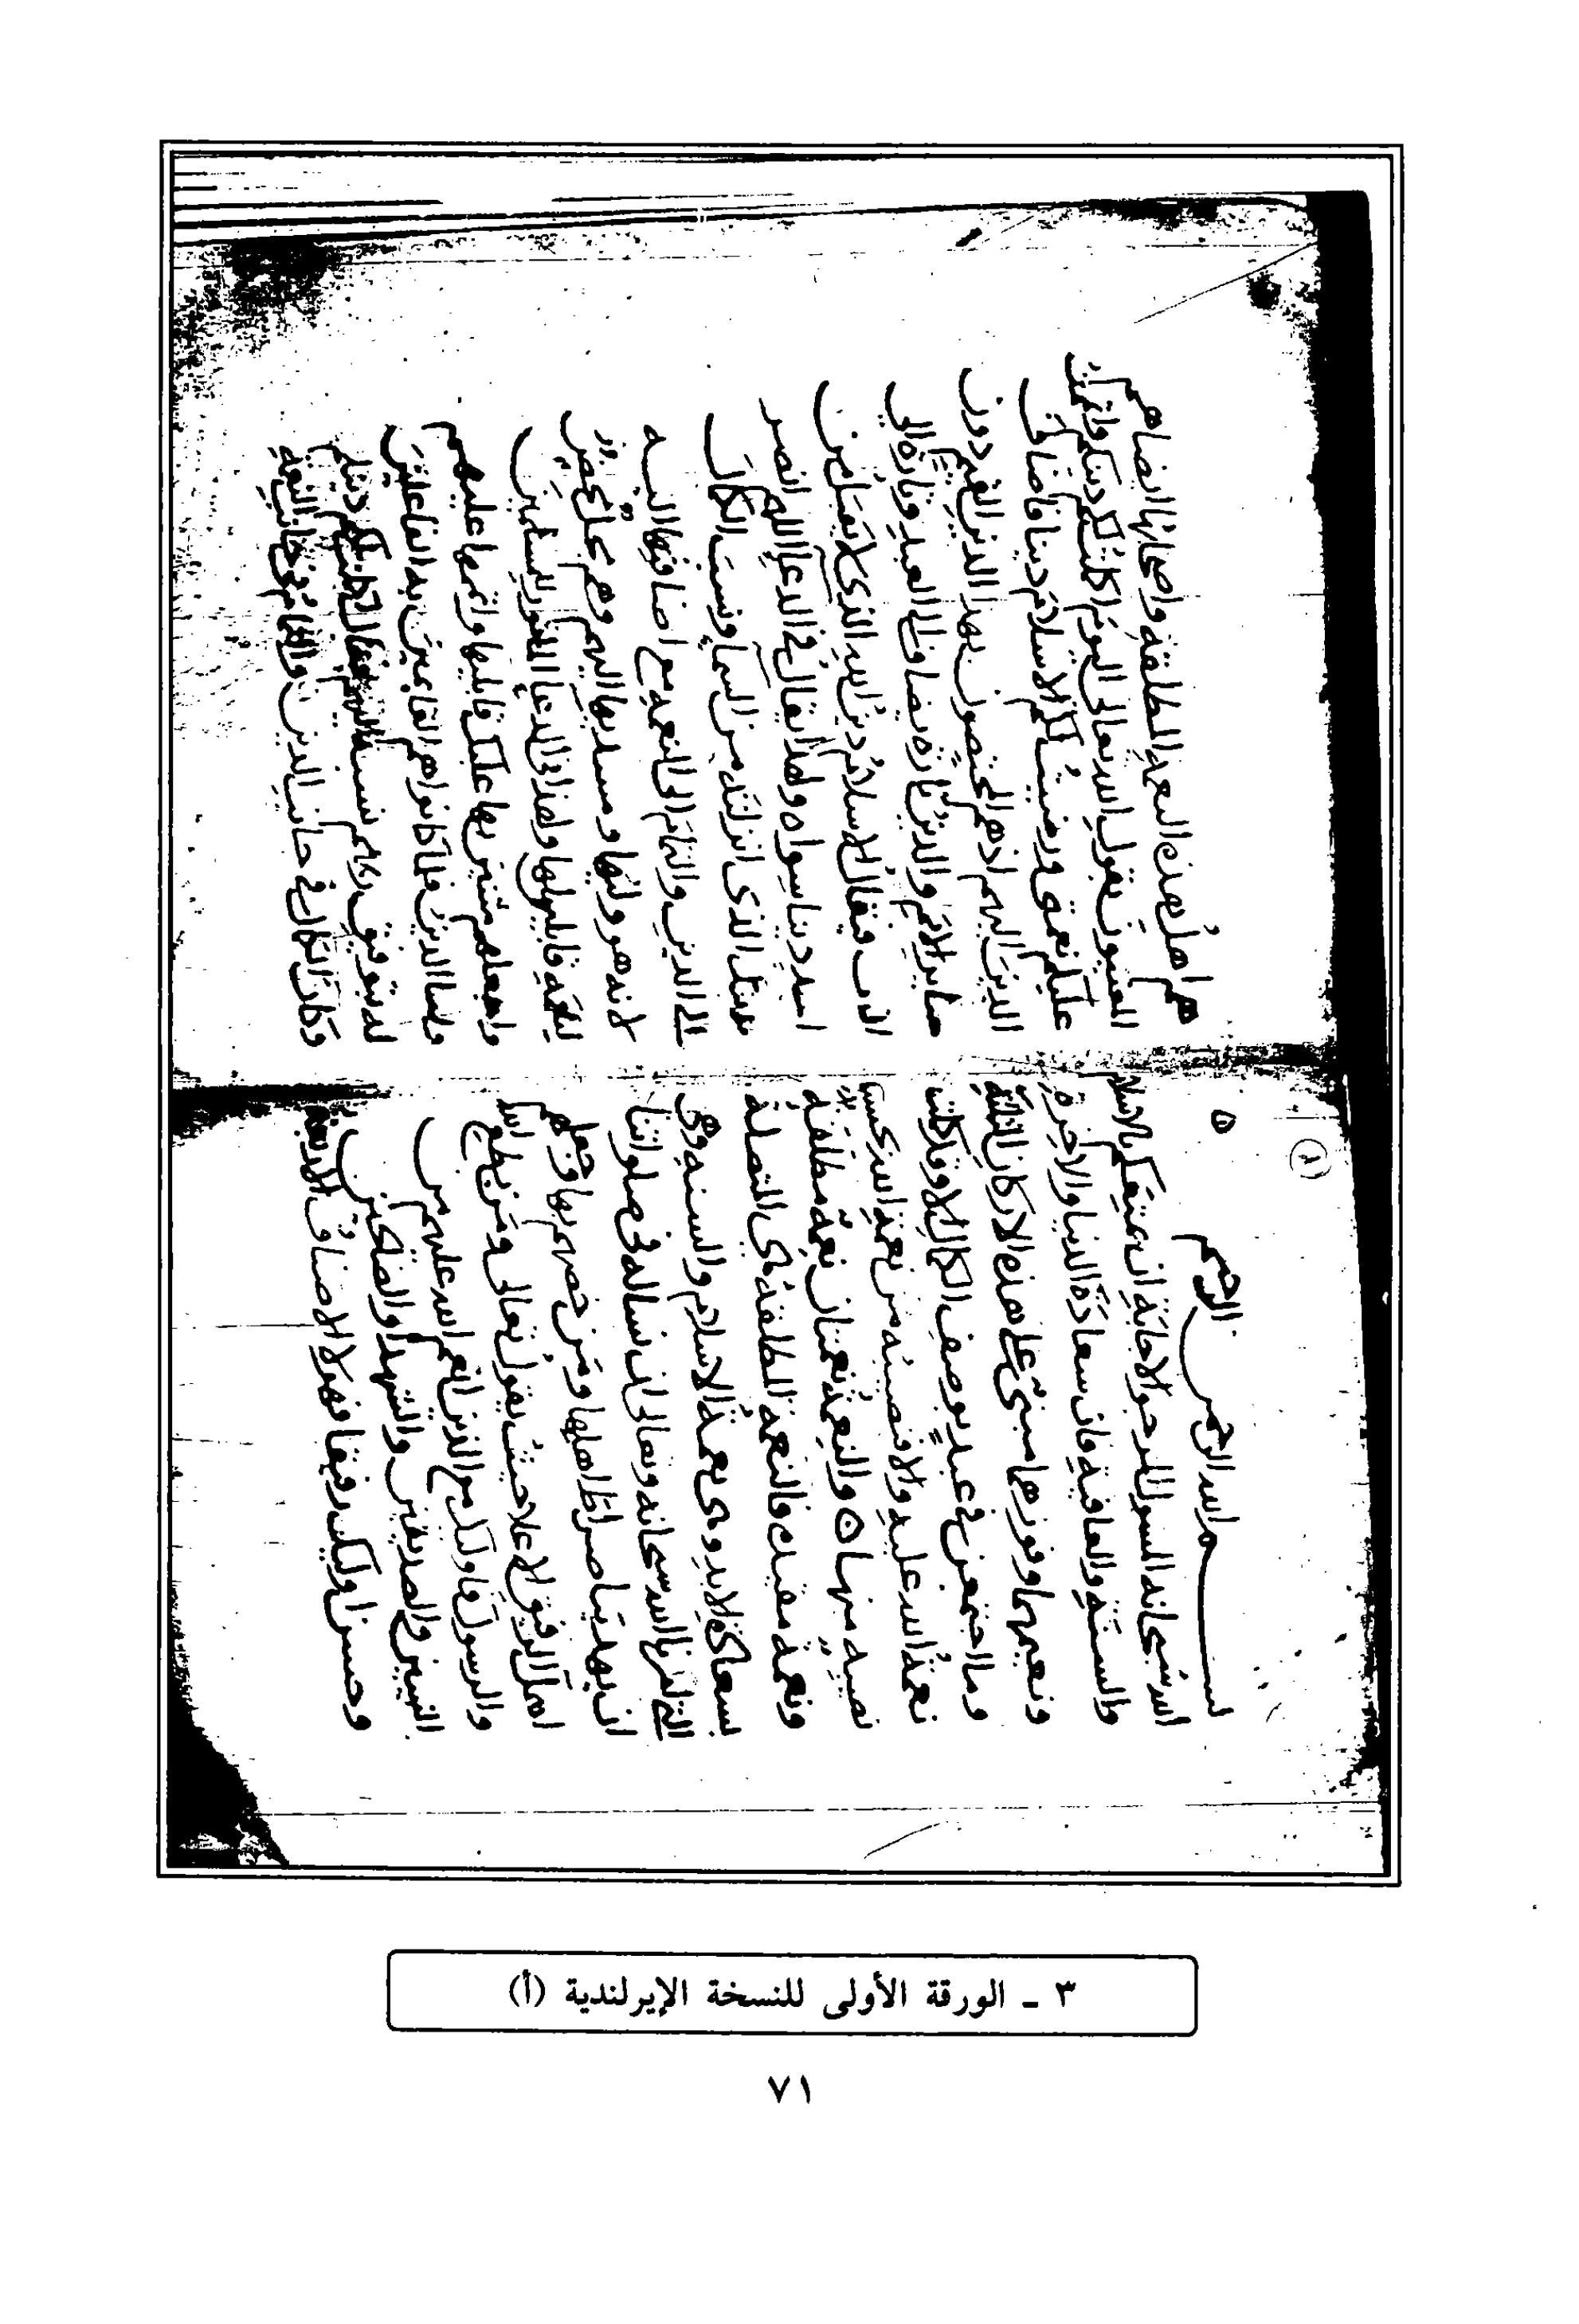 بسم الله الرحمن الرحيم
الله سبحانه المسول المرجو الاجابة ان يمتعكم بالاسلام
والسنة والعافية فان سعادة الدنيا والاخرة
ونعيمهما وفوزهما مبنى على هذه الاركان الثلثة
وما اجتمعن في عبد بوصف الكمال الا وقد كملت
نعمة الله عليه والا فنصيبه من نعمة الله بحسب
نصيبه منها ۞ والنعمة نعمتان نعمة مطلقة
ونعمة مقيدة فالنعمة المطلقة هى المتصلة
بسعادة الابد وهى نعمة الاسلام والسنة وهى
التي امرنا الله سبحانه وتعالى ان نساله في صلواتنا
ان يهدينا صراط اهلها ومن خصهم بها وجعلهم
اهل الرفيق الاعلا حيث يقول تعالى ومن يطع الله
والرسول فاوليك مع الذين انعم الله عليهم من
النبيين والصديقين والشهدا والصالحين
وحسن اوليك رفيقا فهولا الاصناف الاربعة
هم اهل هذه النعمة المطلقة واصحابها ايضا هم
المعنيون بقول الله تعالى اليوم اكملت لكم دينكم واتممت
عليكم نعمتي ورضيت لكم الاسلام دينا فاضاف
الدين اليهم اذ هم المختصون بهذا الدين القيم دون
ساير الامم والدين تارة يضاف الى العبد وتارة الى
الرب فيقال الاسلام دين الله الذى لا يقبل من
احد دينا سواه ولهذا يقال في الدعا اللهم انصر
دينك الذى انزلته من السما ونسب الكمال
الى الدين والتمام الى النعمة مع اضافتها اليه
لانه هو وليها ومسديها اليهم وهم محل محض
لنعمه قابلين لها ولهذا فى الدعا الماثور للمسلمين
واجعلهم مثنين بها عليك قابليها واتممها عليهم
واما الدين فلما كانوا هم القايمين به الفاعلين
له بتوفيق ربهم نسبه اليهم فقال اكملت لكم دينكم
وكان الكمال في جانب الدين والتمام في جانب النعمة
٣ ـ الورقة الأولى للنسخة الإيرلندية (أ)
٧١